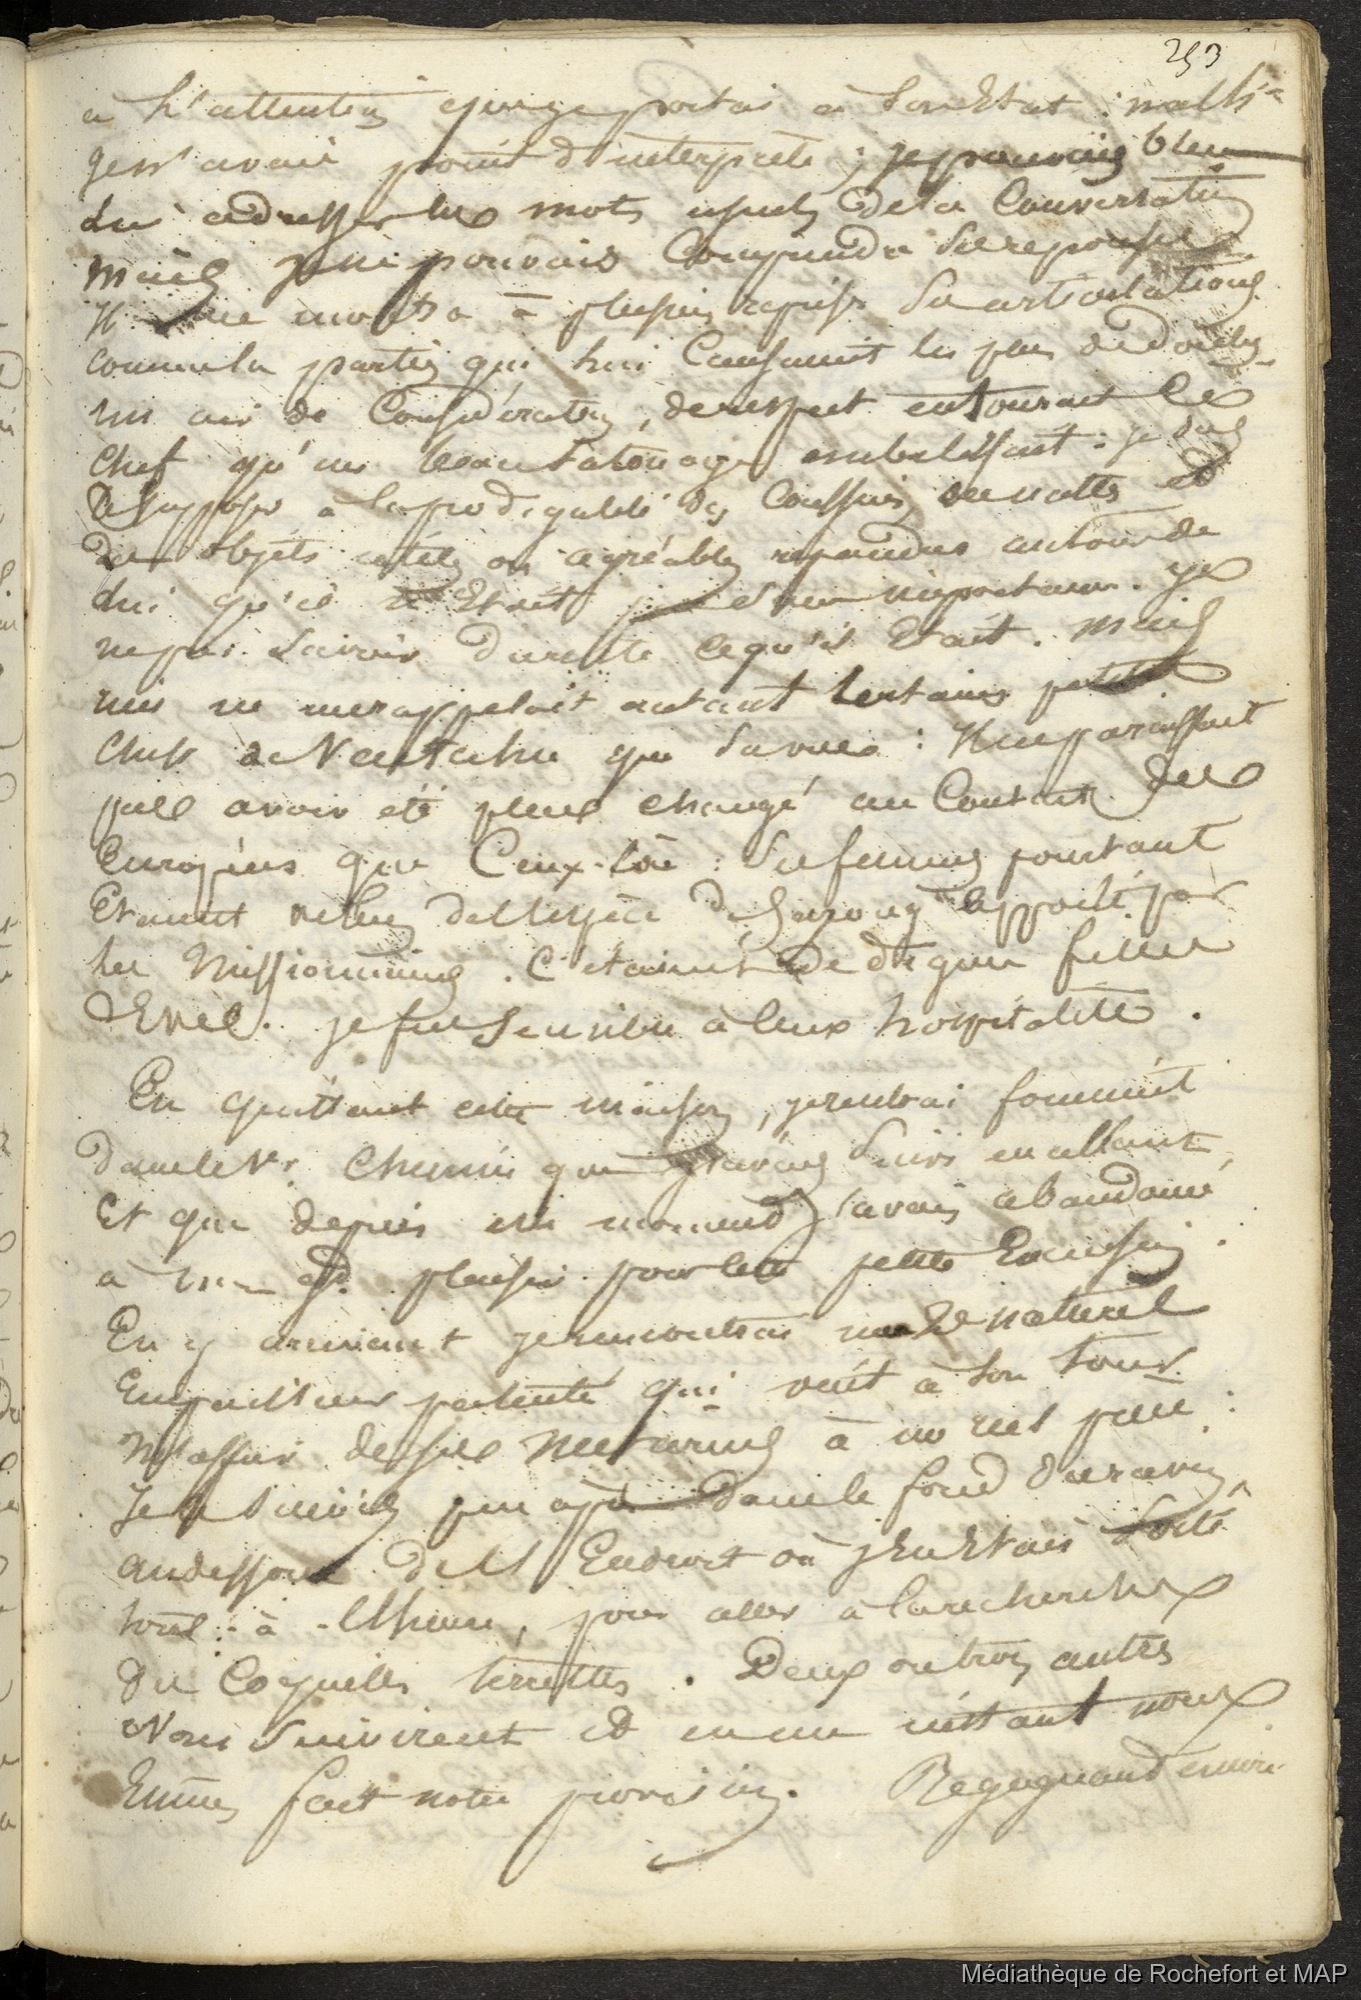 253
a l'attention que je portais à son Etat : malh.
je n'avais point d'interprète ; je pouvais bien
lui adresser les mots usuels de la Conversation
mais je ne pouvais Comprendre ses reponses.
Il me montra à plusieurs reprises les articulations
comme la partie qui lui Causaient le plus de douleurs
un air de Considération, de respect entourait ce
Chef qu'un beau tatouage embelissait : je dus
supposer à la prodigalité des Coussins, de nattes et
des objets utiles ou agréables repandus autour de
lui qu'il n'Etait pas sans importance. Je
ne pus savoir du reste ce qu'il Etait. Mais
rien ne me rappelait autant certains petits
Chefs de que sa vue : Il ne paraissait
pas avoir été plus changé au Contact des
Européens que Ceux-là : ses femmes pourtant
Etaient de l'espèce de apporté par
les Missionnaires. C'etaient de dignes filles
d'Eve. je fus sensible à leur hospitalité.
En quittant cette maison, je rentrai
dans le Chemin que j'avais suivi en allant,
Et que depuis un moment j'avais abandonné
à mon gd. plaisir pour cette petite Excursion.
En y arrivant je rencontrai un 2e naturel
qui vint à son tour
m'assurer de ses à mes :
Je le suivis peu après dans le fond du ravin,
au dessous de l'Endroit où j'en Etais sorti
tout-à-l'heure, pour aller à la recherche
des Coquilles terrestres. Deux ou trois autres
Nous suivirent et en un instant nous
Eumes fait notre provision. Regagnant
Médiathèque de Rochefort et MAP